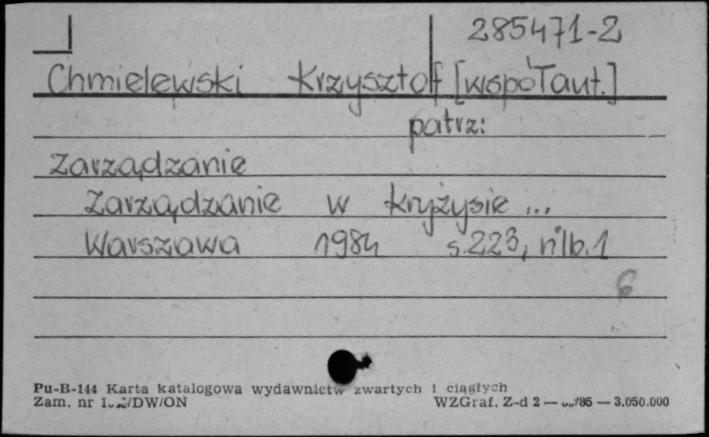 285471-2
Chmielewski Krzysztof [współaut.]
patrz:
Zarządzanie
Zarządzanie w kryzysie ...
Warszawa 1984 s.223, nlb.1
6
Pu-B-144 Karta katalogowa wydawnictw zwartych i ciągłych
Zam. nr /DW/ON WZGraf. Z-d 2 — /86 — 3.050.000